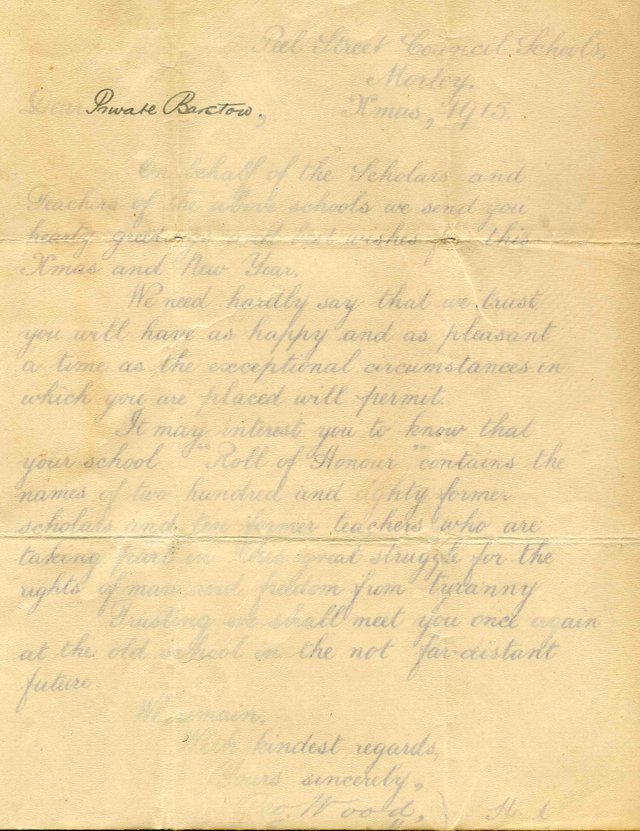 Peel Street Council Schools,
Morley.
Dear Private Barstow, Xmas, 1915.
On behalf of the Scholars and
Teachers of the above schools we send you
hearty greetings and best wishes for this
Xmas and New Year.
We need hardly say that we trust
you will have as happy and as pleasant
a time as the exceptional circumstances in
which you are placed will permit.
It may interest you to know that
your school "Roll of Honour" contains the
names of two hundred and eighty former
scholars and ten former teachers who are
taking part in this great struggle for the
rights of man and freedom from tyranny
Trusting we shall meet you once again
at the old school in the not far-distant
future
We remain,
With kindest regards,
Yours sincerely,
Wood,